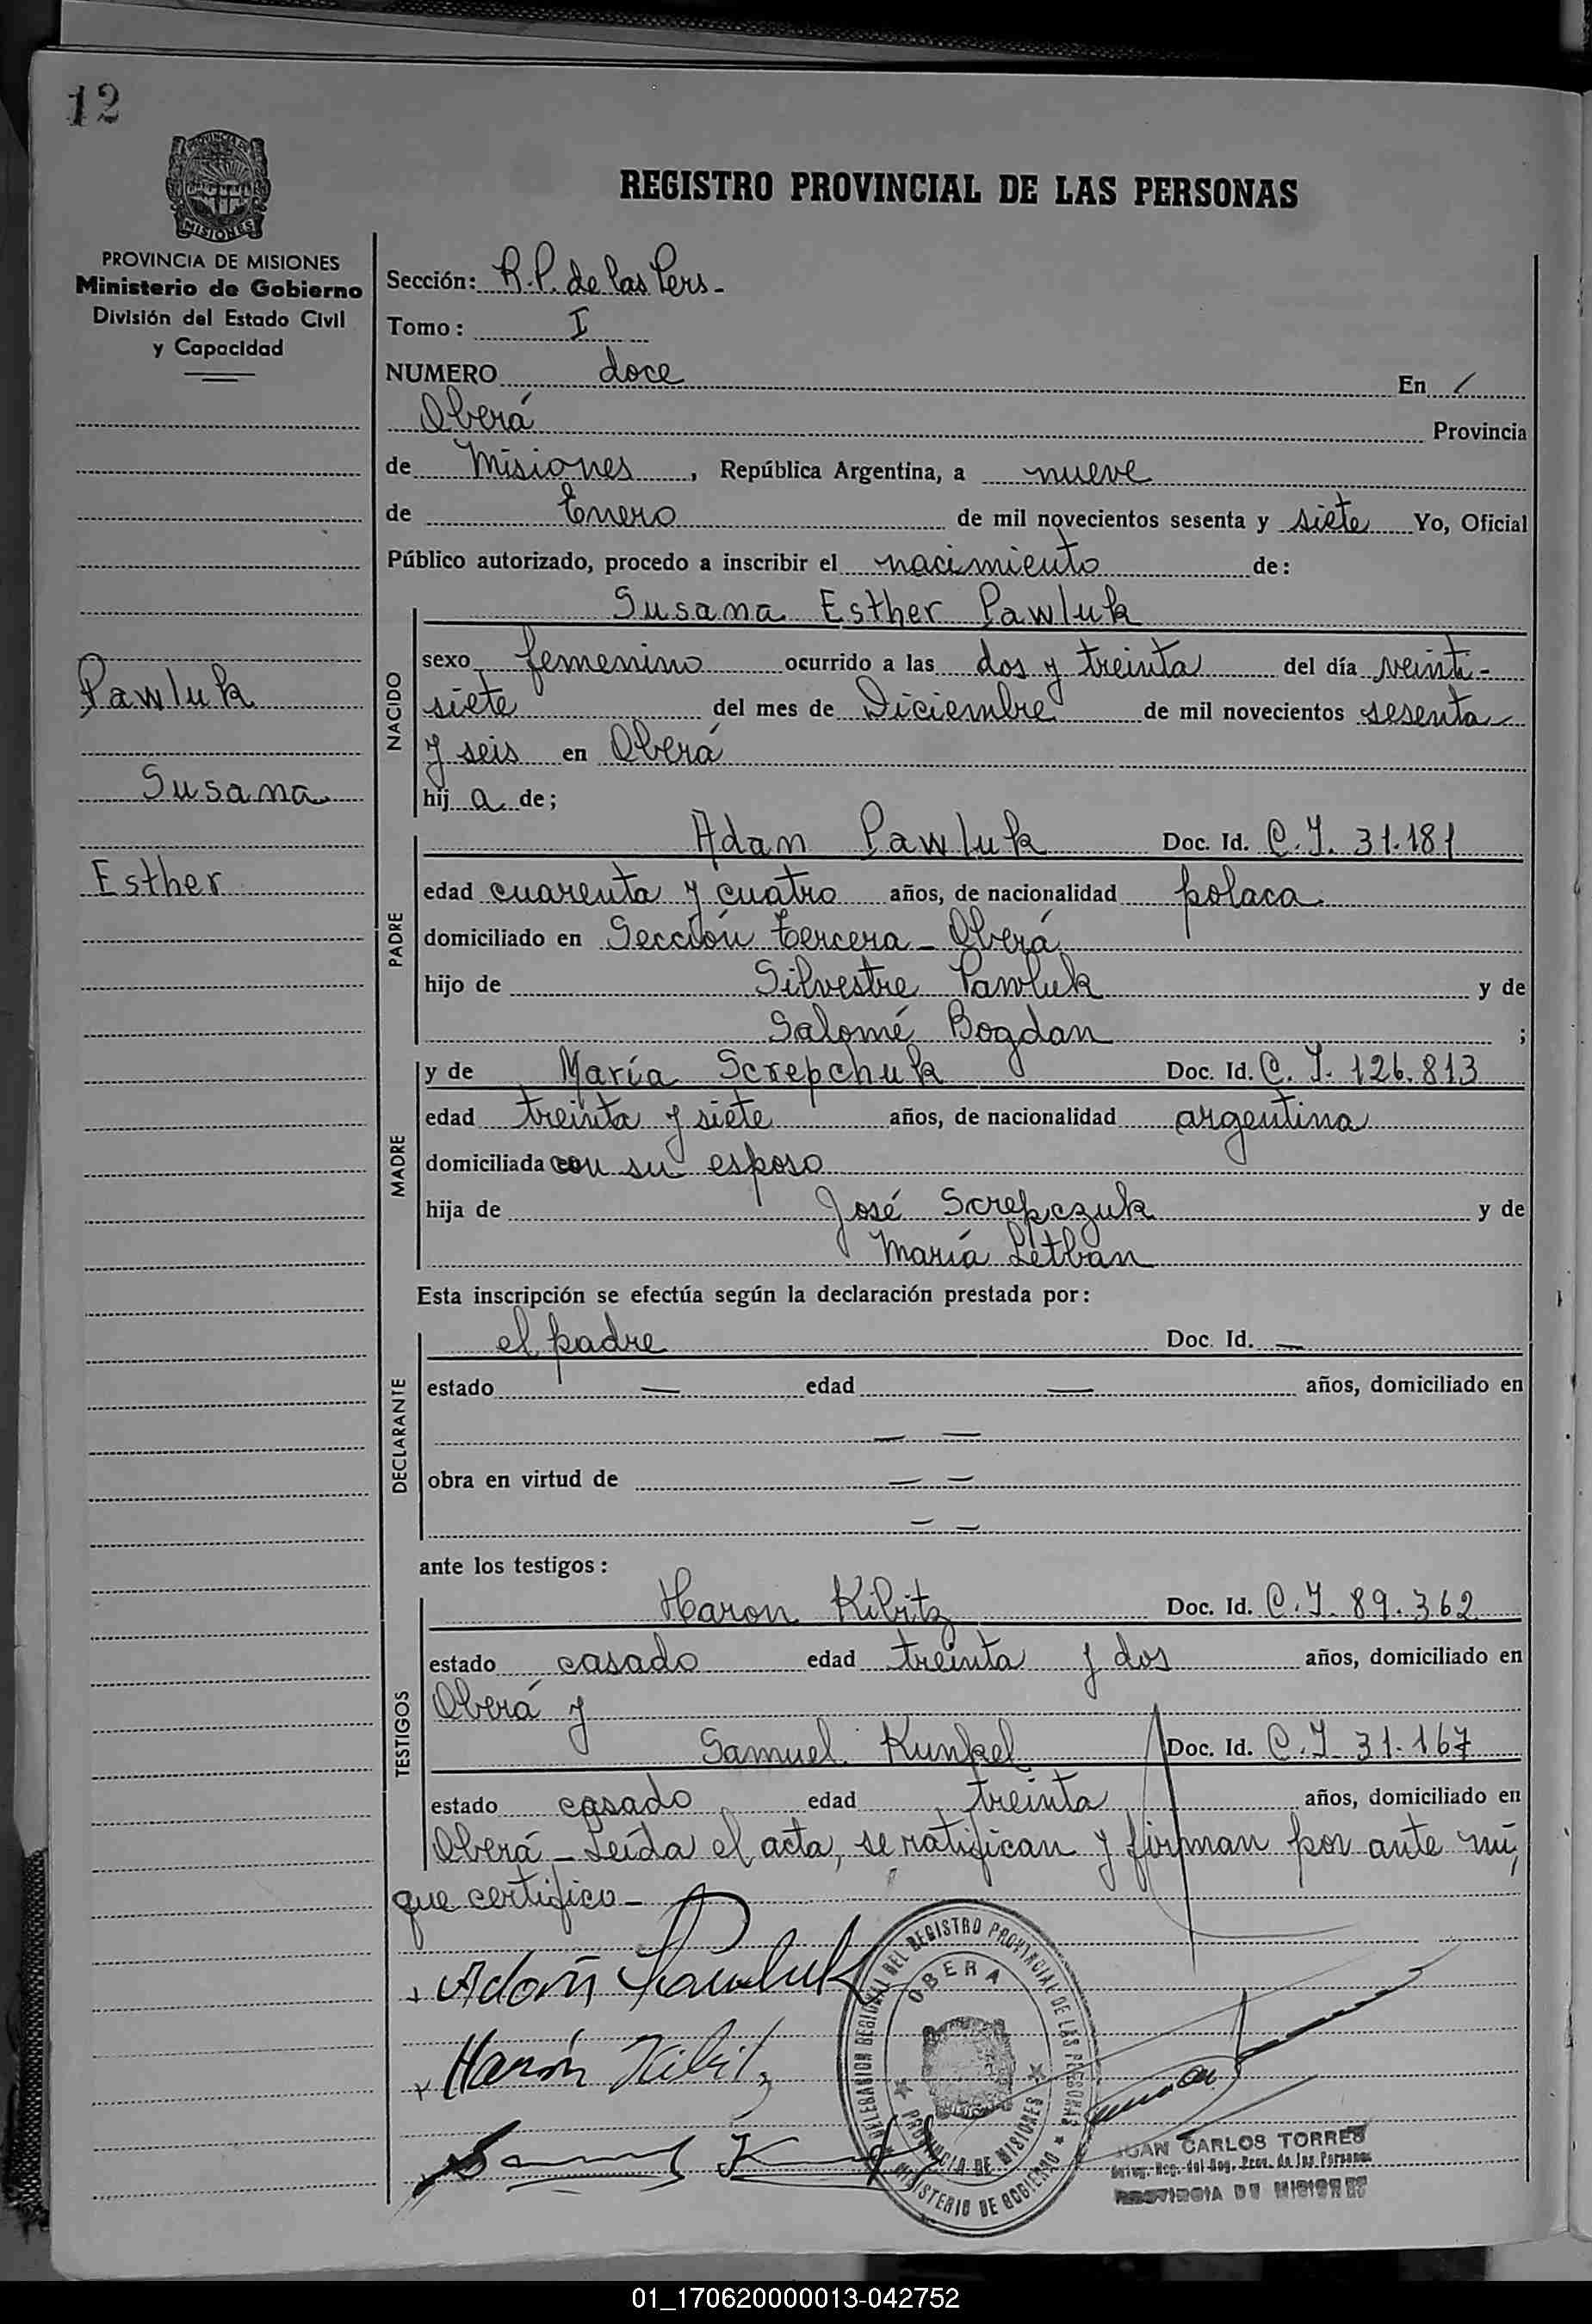 12
PROVINCIA DE MISIONES
PROVINCIA DE MISIONES
Ministerio de Gobierno
División del Estado Civil
y Capacidad
Pawluk
Susana
Esther
REGISTRO PROVINCIAL DE LAS PERSONAS
Sección: R.P. de las Pers-
Tomo: I
NUMERO doce En
Oberá Provincia
de Misiones, República Argentina, a nueve
de Enero de mil novecientos sesenta y siete Yo, Oficial
Público autorizado, procedo a inscribir el nacimiento de:
NACIDO
Susana Esther Pawluk
sexo femenino ocurrido a las dos y treinta del día veinti-
siete del mes de Diciembre de mil novecientos sesenta
y seis en Oberá
hij a de;
PADRE
Adan Pawluk Doc. Id. C.I. 31.181
edad cuarenta y cuatro años, de nacionalidad polaca
domiciliado en Sección tercera - Oberá
hijo de Silvestre Pawluk y de
Salomé Bogdan ;
MADRE
y de María Screpchuk Doc. Id. C.I. 126.813
edad treinta y siete años, de nacionalidad argentina
domiciliada con su esposo
hija de José Screpczuk y de
María Letban
Esta inscripción se efectúa según la declaración prestada por:
DECLARANTE
el padre Doc. Id. —
estado — edad — años, domiciliado en
— —
obra en virtud de — —
— —
ante los testigos:
TESTIGOS
Haron Kibitz Doc. Id. C.I. 89.362
estado casado edad treinta y dos años, domiciliado en
Oberá y
Samuel Kunkel Doc. Id. C.I. 31.167
estado casado edad treinta años, domiciliado en
Oberá - Leída el acta, se ratifican y firman por ante mí,
que certifico -
Adan Pawluk
Harón Kibitz
DELEGACION REGIONAL DEL REGISTRO PROVINCIAL DE LAS PERSONAS
OBERA
PROVINCIA DE MISIONES
MINISTERIO DE GOBIERNO
JUAN CARLOS TORRES
Deleg. Reg. del Reg. Prov. de las Personas
PROVINCIA DE MISIONES
01_170620000013-042752